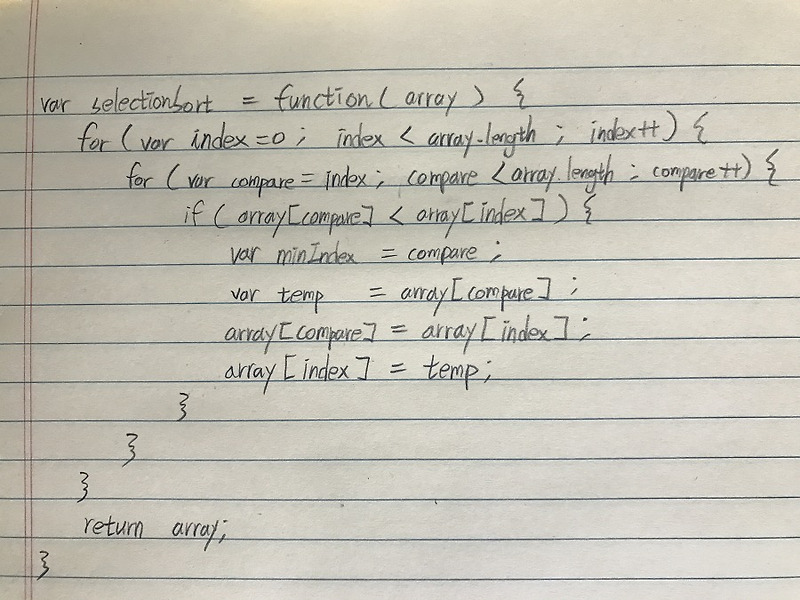 var selectionSort = function( array ) {
for ( var index=0 ; index < array.length ; index++ ) {
for ( var compare = index ; compare < array.length ; compare++ ) {
if ( array[compare] < array[index] ) {
var minIndex = compare ;
var temp = array[compare] ;
array[compare] = array[index] ;
array[index] = temp;
}
}
}
return array;
}